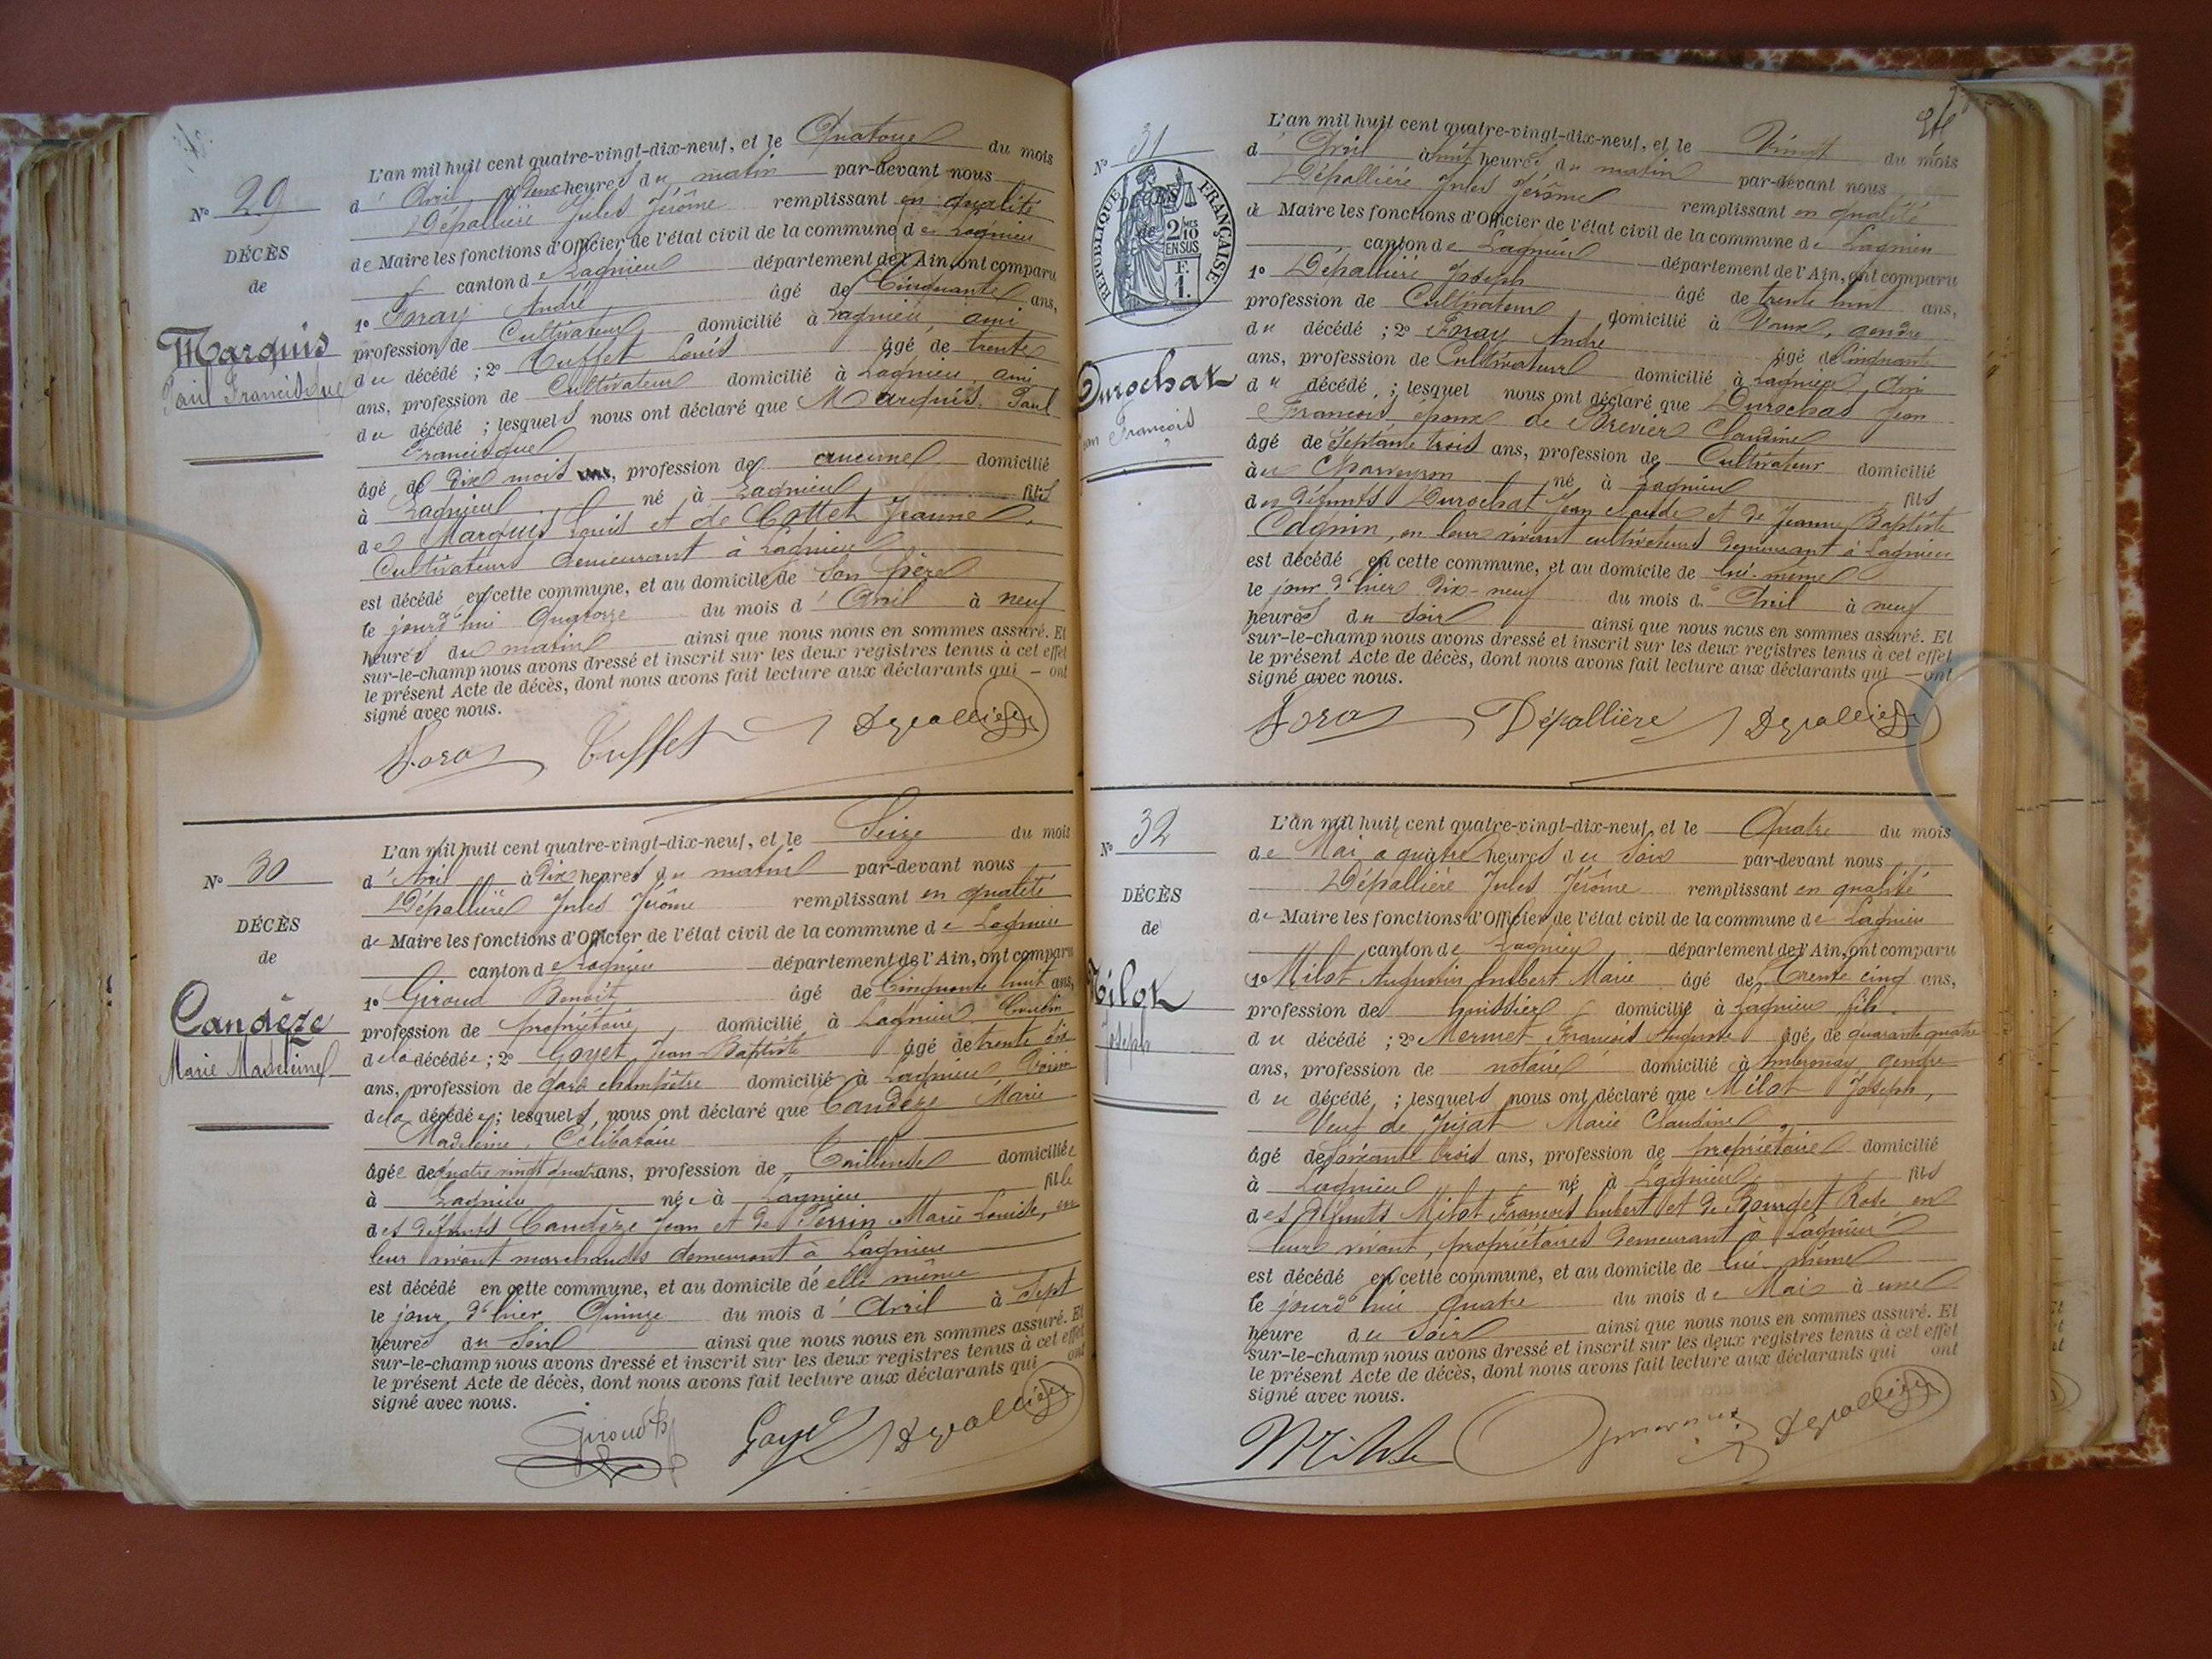 N° 29
DÉCÈS
de
Marquis
Paul Francisque
L'an mil huit cent quatre-vingt-dix-neuf, et le Quatorze du mois
d'Avril à onze heures du matin par-devant nous
Dépallière Jules Jérôme remplissant en qualité
de Maire les fonctions d'Officier de l'état civil de la commune de Lagnieu
canton de Lagnieu département de l'Ain, ont comparu
1° Foray André âgé de Cinquante ans,
profession de Cultivateur domicilié à Lagnieu, ami
du décédé ; 2° Tuffet Louis âgé de trente
ans, profession de Cultivateur domicilié à Lagnieu, ami
du décédé ; lesquels nous ont déclaré que Marquis Paul
Francisque
âgé de dix mois ans, profession de aucune domicilié
à Lagnieu né à Lagnieu fils
de Marquis Louis et de Cottet Jeanne,
Cultivateurs demeurant à Lagnieu
est décédé en cette commune, et au domicile de son père
le jourd'hui quatorze du mois d'Avril à neuf
heures du matin ainsi que nous nous en sommes assuré. Et
sur-le-champ nous avons dressé et inscrit sur les deux registres tenus à cet effet
le présent Acte de décès, dont nous avons fait lecture aux déclarants qui – ont
signé avec nous.
Foray Tuffet Depallière
N° 30
DÉCÈS
de
Candèze
Marie Madeleine
L'an mil huit cent quatre-vingt-dix-neuf, et le Seize du mois
d'Avril à Dix heures du matin par-devant nous
Dépallière Jules Jérôme remplissant en qualité
de Maire les fonctions d'Officier de l'état civil de la commune de Lagnieu
canton de Lagnieu département de l'Ain, ont comparu
1° Giroud Benoît âgé de Cinquante huit ans,
profession de propriétaire, domicilié à Lagnieu, Cousin
de la décédée ; 2° Goyet Jean-Baptiste âgé de trente six
ans, profession de garde champêtre domicilié à Lagnieu Voisin
de la décédée ; lesquels nous ont déclaré que Candèze Marie
Madeleine, Célibataire
âgée de quatre vingt quatre ans, profession de Tailleuse domiciliée
à Lagnieu née à Lagnieu fille
des défunts Candèze Jean et de Perrin Marie Louise, en
leur vivant marchands demeurant à Lagnieu
est décédé en cette commune, et au domicile de elle même
le jour d'hier Quinze du mois d'Avril à Sept
heures du Soir ainsi que nous nous en sommes assuré. Et
sur-le-champ nous avons dressé et inscrit sur les deux registres tenus à cet effet
le présent Acte de décès, dont nous avons fait lecture aux déclarants qui ont
signé avec nous.
Giroud B Goyet Depallière
N° 31
RÉPUBLIQUE FRANÇAISE
2/10 EN SUS
1 F.
DÉCÈS
de
Durochat
Jean François
L'an mil huit cent quatre-vingt-dix-neuf, et le Vingt du mois
d'Avril à huit heures du matin par-devant nous
Dépallière Jules Jérôme remplissant en qualité
de Maire les fonctions d'Officier de l'état civil de la commune de Lagnieu
canton de Lagnieu département de l'Ain, ont comparu
1° Dépallière Joseph âgé de trente huit ans,
profession de Cultivateur, domicilié à Vaux, gendre
du décédé ; 2° Foray André âgé de Cinquante
ans, profession de Cultivateur domicilié à Lagnieu, Ami
du décédé ; lesquel nous ont déclaré que Durochat Jean
François époux de Brevier Claudine
âgé de Septante trois ans, profession de Cultivateur domicilié
au Charveyron né à Lagnieu fils
des défunts Durochat Jean Claude et de Jeanne Baptiste
Cagnin, en leur vivant cultivateurs demeurant à Lagnieu
est décédé en cette commune, et au domicile de lui-même
le jour d'hier dix-neuf du mois d'Avril à neuf
heures du Soir ainsi que nous nous en sommes assuré. Et
sur-le-champ nous avons dressé et inscrit sur les deux registres tenus à cet effet
le présent Acte de décès, dont nous avons fait lecture aux déclarants qui – ont
signé avec nous.
Foray Dépallière Depallière
N° 32
DÉCÈS
de
Milot
Joseph
L'an mil huit cent quatre-vingt-dix-neuf, et le Quatre du mois
de Mai à quatre heures du Soir par-devant nous
Dépallière Jules Jérôme remplissant en qualité
de Maire les fonctions d'Officier de l'état civil de la commune de Lagnieu
canton de Lagnieu département de l'Ain, ont comparu
1° Milot Augustin Imbert Marie âgé de Trente cinq ans,
profession de huissier, domicilié à Lagnieu fils
du décédé ; 2° Mermet François Auguste âgé de quarante quatre
ans, profession de notaire domicilié à Ambronay, gendre
du décédé ; lesquels nous ont déclaré que Milot Joseph,
Veuf de Jujat Marie Claudine
âgé de soixante trois ans, profession de propriétaire domicilié
à Lagnieu né à Lagnieu fils
des défunts Milot François Imbert et de Bourdet Rose en
leur vivant, propriétaires demeurant à Lagnieu
est décédé en cette commune, et au domicile de lui-même
le jourd'hui quatre du mois de Mai à une
heure du Soir ainsi que nous nous en sommes assuré. Et
sur-le-champ nous avons dressé et inscrit sur les deux registres tenus à cet effet
le présent Acte de décès, dont nous avons fait lecture aux déclarants qui ont
signé avec nous.
Milot Depallière